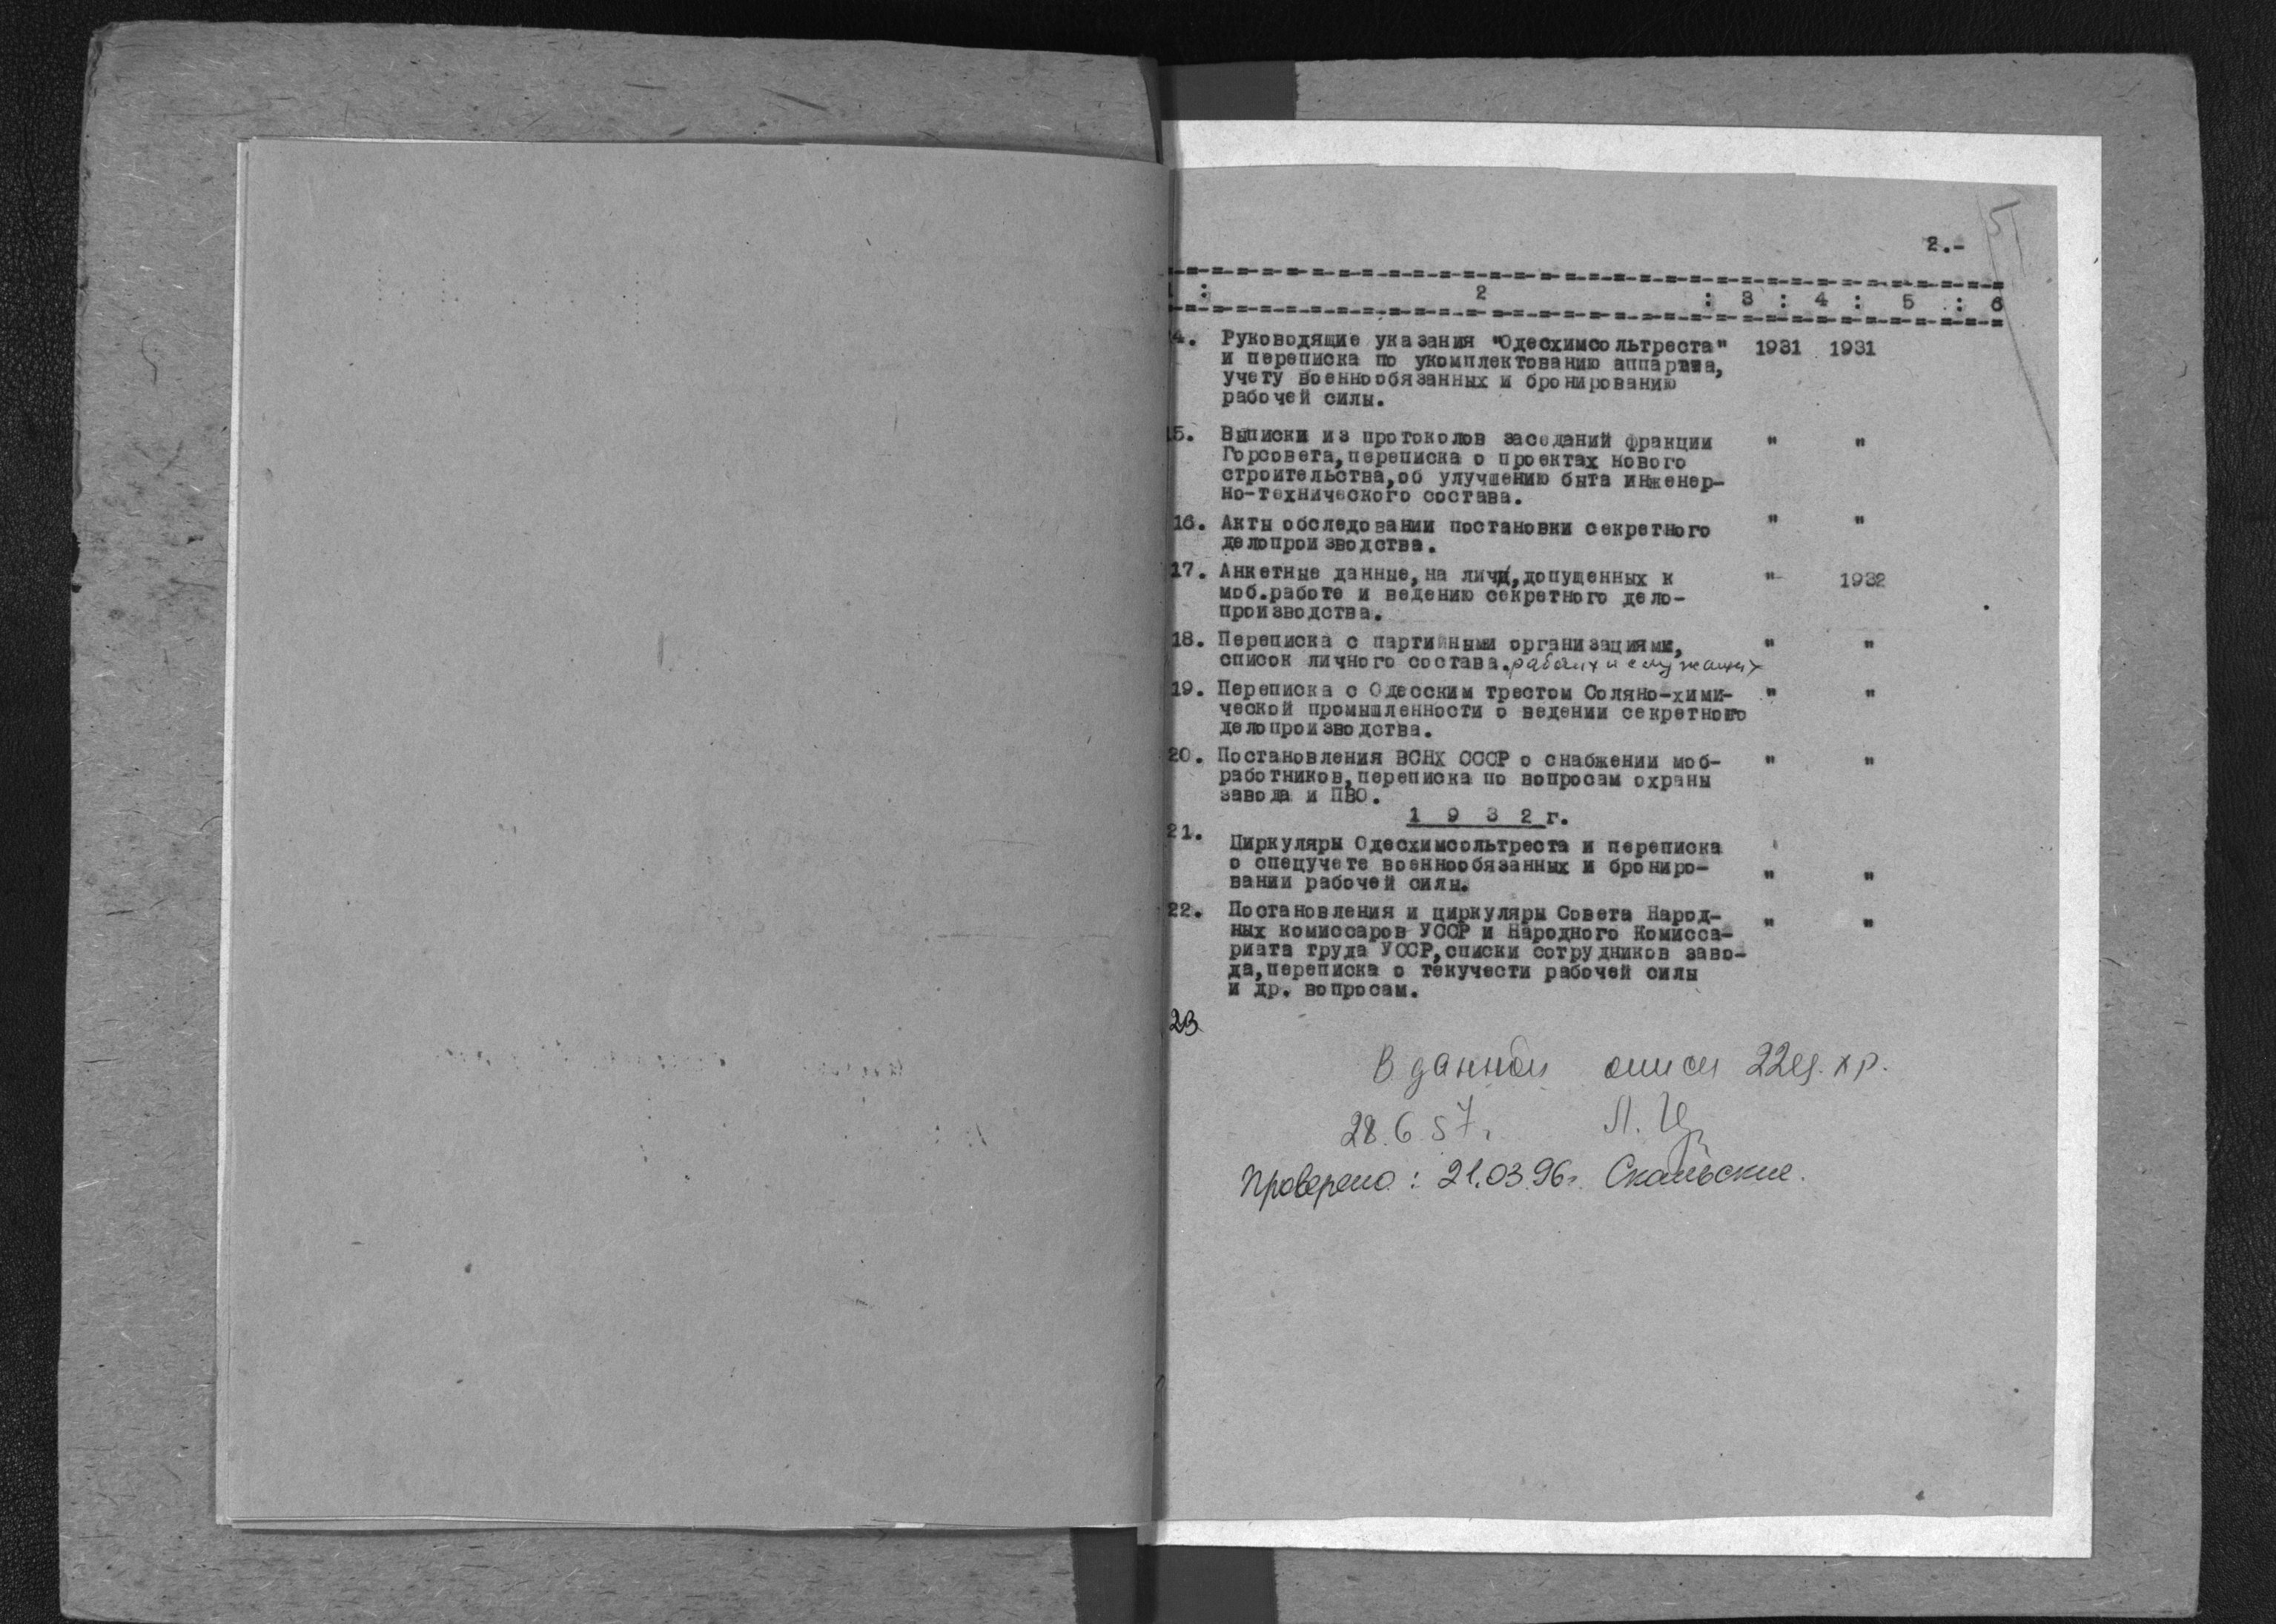 5
2.-
1 : 2 : 3 : 4 : 5 : 6
4. Руководящие указания "Одесхимсольтреста" 1931 1931
и переписка по укомплектованию аппарата,
учету военнообязанных и бронированию
рабочей силы.
15. Выписки из протоколов заседаний фракции " "
Горсовета,переписка о проектах нового
строительства,об улучшению быта инженер-
но-технического состава.
16. Акты обследовании постановки секретного " "
делопроизводства.
17. Анкетные данные,на лиц,допущенных к " 1932
моб.работе и ведению секретного дело-
производства.
18. Переписка с партийными организациями, " "
список личного состава.рабочих и служащих
19. Переписка с Одесским трестом Соляно-хими- " "
ческой промышленности о ведении секретного
делопроизводства.
20. Постановления ВСНХ СССР о снабжении моб- " "
работников,переписка по вопросам охраны
завода и ПВО.
1 9 3 2 г.
21.
Циркуляры Одесхимсольтреста и переписка
о спецучете военнообязанных и брониро-
вании рабочей силы. " "
22. Постановления и циркуляры Совета Народ-
ных комиссаров УССР и Народного Комисса- " "
риата труда УССР,списки сотрудников заво-
да,переписка о текучести рабочей силы
и др. вопросам.
23
В данной описи 22 ед. хр.
28.6.57г.
Проверено: 21.03.96г.